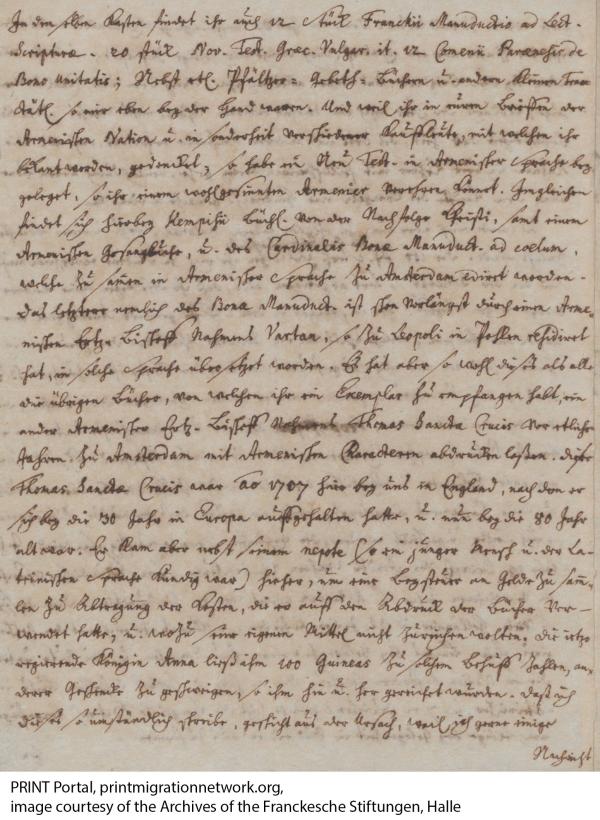 In dem selben Kasten findet ihr auch 12 Stück Franckii Manuductio ad Lect.
Scripturæ. 20 stück Nov. Test. Græc. Vulgar. it. 12 Comenii Parænesis de
Bono Unitatis; Nebst etl. Pfältzer= Gebeth=Büchern u. andern kleinen Trac-
tätl. so mir eben bey der Hand waren. Und weil ihr in euren Brieffen der
Armenischen Nation u. in sonderheit verschiedener Kauffleute, mit welchen ihr
bekant worden, gedencket, so habe ein Neu Test. in Armenischer Sprache bey
geleget, so ihr einem wohlgesinnten Armenier verehren könnet. Ingleichen
findet sich hierbey Kempisii Büchl. von der Nachfolge Christi, samt einem
Armenischen Gesangbuche, u. des Cardinalis Bonæ Manuduct. ad coelum,
welche zusammen in Armenischer Sprache zu Amsterdam ediret worden.
Das letztere nemlich des Bonæ Manuduct. ist schon vorlängst durch einen Arme-
nischen Ertz=Bischoff Nahmens Vartan, so zu Leopoli in Pohlen residiret
hat, in solche Sprache übersetzet worden. Es hat aber so wohl dieses als alle
die übrigen Bücher, von welchen ihr ein Exemplar zu empfangen habt, ein
ander Armenischer Ertz-Bischoff Nahmens Thomas Sanctæ Crucis vor etlichen
Jahren zu Amsterdam mit Armenischen Characteren abdrucken lassen. Dieser
Thomas Sanctæ Crucis war Ao 1707 hier bey uns in England, nachdem er
sich bey die 30 Jahr in Europa auffgehalten hatte, u. nun bey die 80 Jahr
alt war. Er kam aber nebst seinem nepote (so ein junger Mensch u. der La-
teinischen Sprache kündig war) hieher, um eine Beysteuer an Gelde zu samm-
len zu Abtragung der Kosten, die er auff den Abdruck der Bücher ver-
wendet hatte, u. wozu seine eigenen Mittel nicht zureichen wolten. Die itzo
regierende Königin Anna ließ ihm 100 Guineas zu solchem Behuff zahlen, an-
derer Geschencke zu geschweigen, so ihm hin u. her gereichet wurden. Daß ich
dieses so umständlich schreibe, geschicht aus der Ursach, weil ich gerne einige
Nachricht
PRINT Portal, printmigrationnetwork.org,
image courtesy of the Archives of the Franckesche Stiftungen, Halle